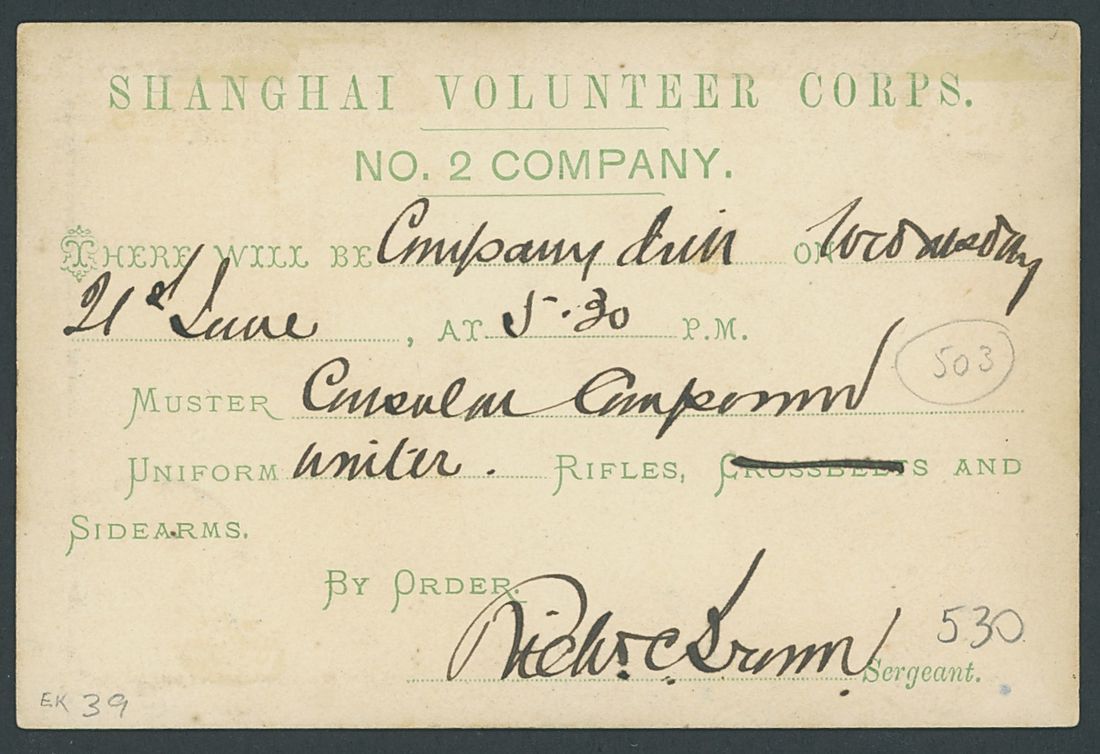 SHANGHAI VOLUNTEER CORPS.
NO. 2 COMPANY.
THERE WILL BE Company drill ON Wednesday
21st June, AT 5.30 P.M.
503
MUSTER Consular Compound
UNIFORM winter. RIFLES, CROSSBELTS AND
SIDEARMS.
BY ORDER.
530
Sergeant.
EK 39